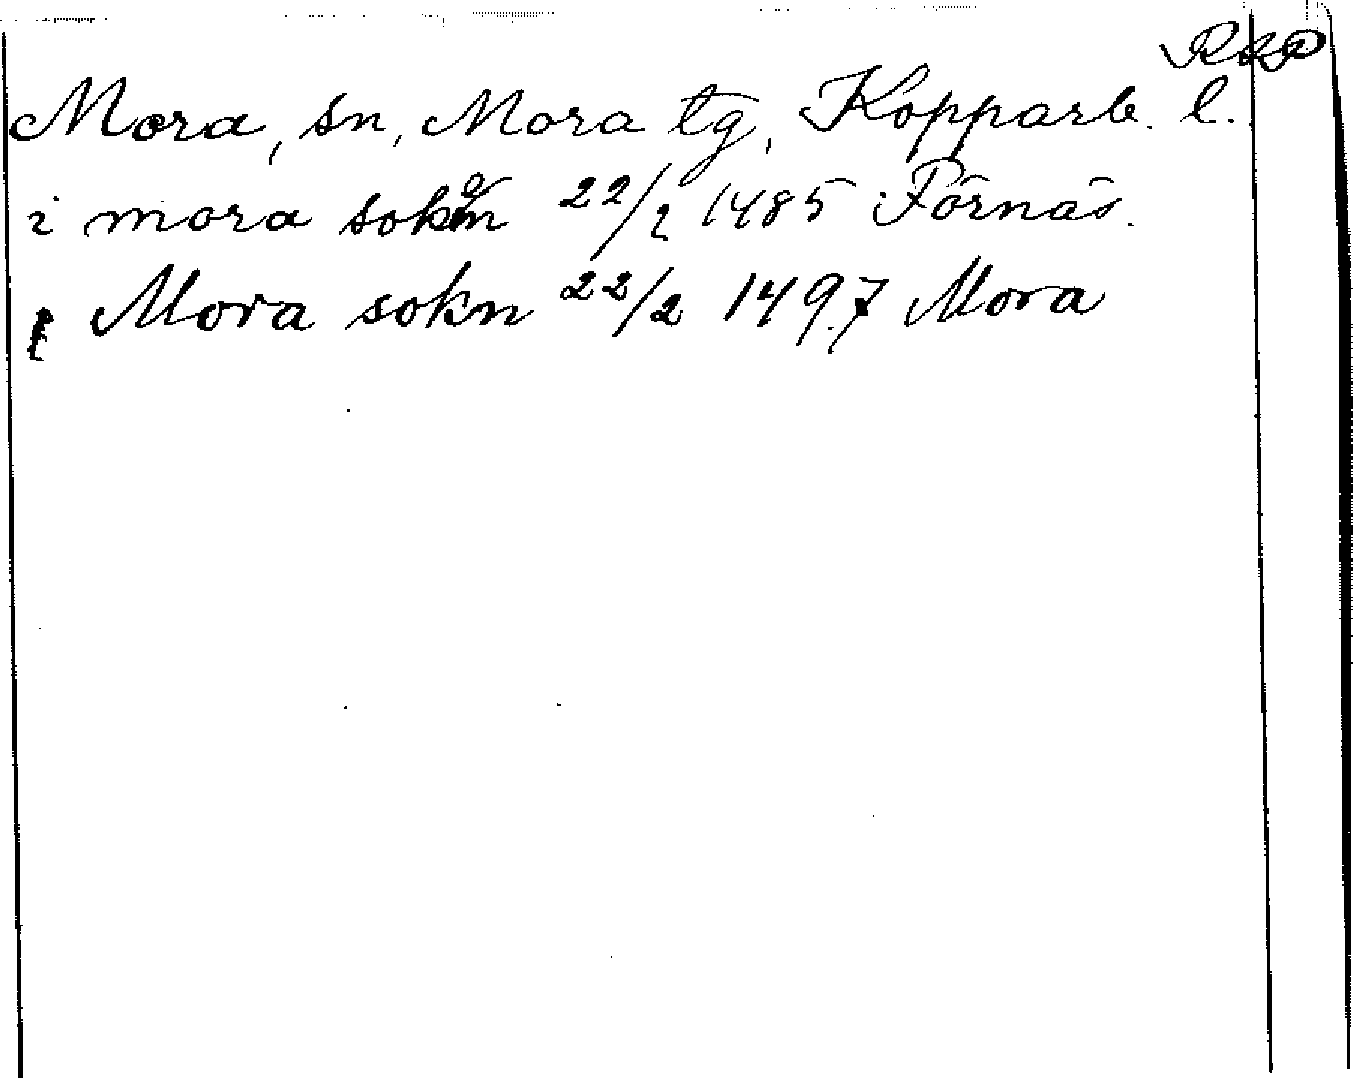 RAP
Mora, sn, Mora tg, Kopparb. l.
i mora sokn 22/2 1485 Förnäs.
i Mora sokn 22/2 1497 Mora